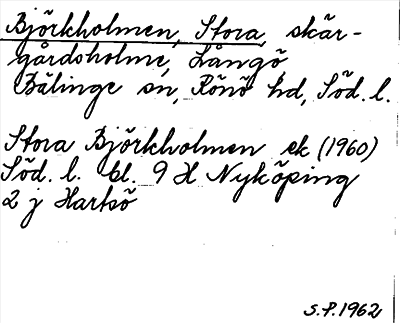 Björkholmen, Stora, skär-
gårdsholme, Långö
Bälinge sn, Rönö hd, Söd. l.
Stora Björkholmen ek (1960)
Söd. l. bl. 9 H Nyköping
2 j Hartsö
S.P. 1962